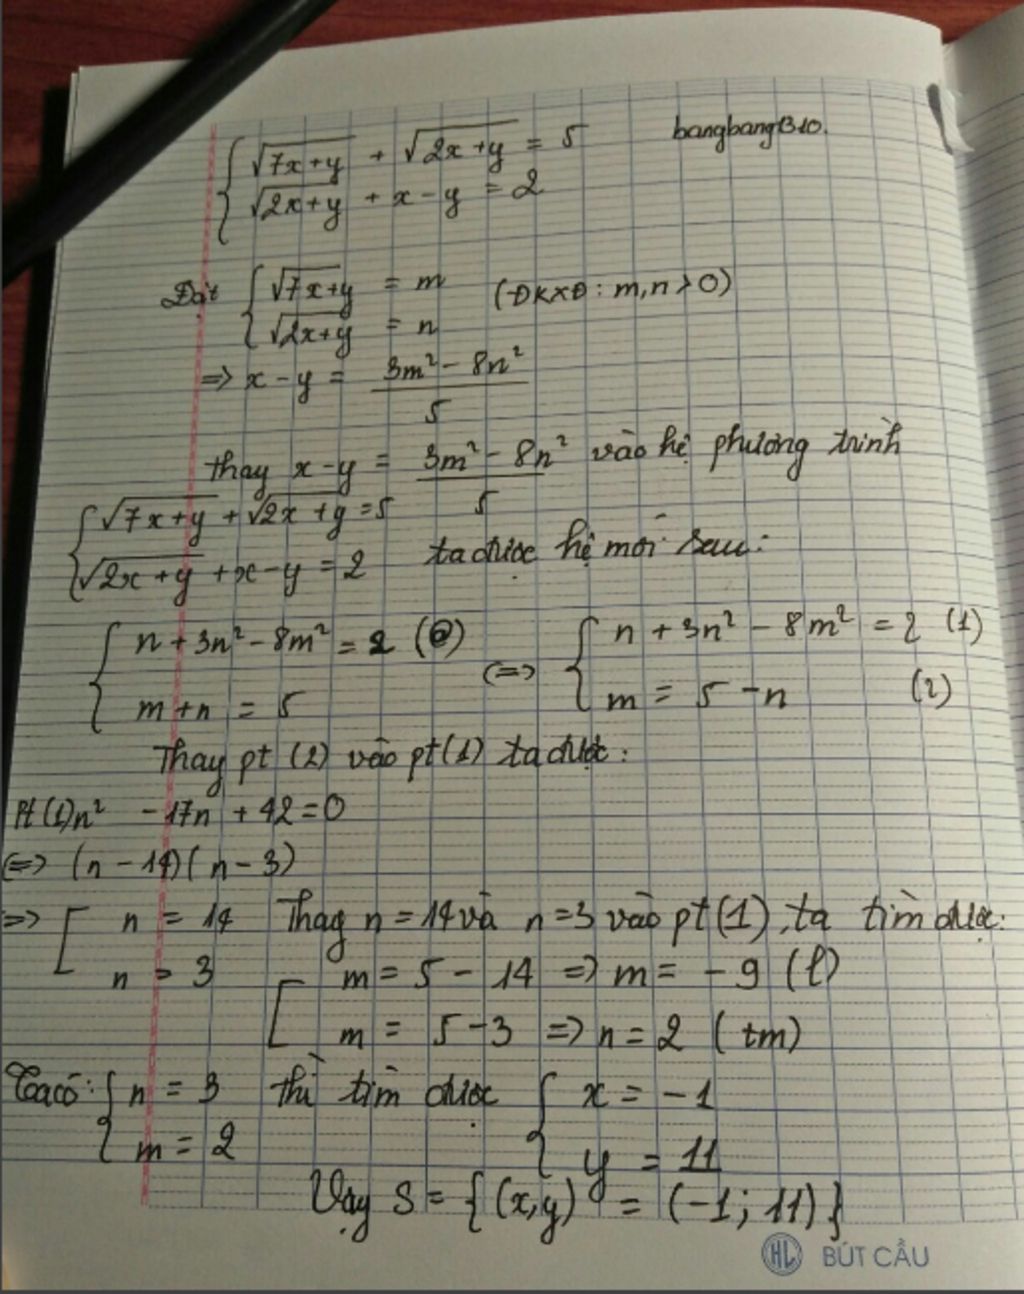 { √7x+y + √2x+y = 5 bangbang1310.
√2x+y + x-y = 2
Đặt { √7x+y = m (ĐKXĐ: m,n > 0)
√2x+y = n
=> x-y = 3m² - 8n² / 5
Thay x-y = 3m² - 8n² / 5 vào hệ phương trình
{ √7x+y + √2x+y = 5
√2x+y + x-y = 2 ta được hệ mới sau:
{ n + 3n² - 8m² = 2 (1) <=> { n + 3n² - 8m² = 2 (1)
m + n = 5 m = 5 - n (2)
Thay pt (2) vào pt (1) ta được:
Pt (1) n² - 17n + 42 = 0
<=> (n - 14)(n - 3)
=> [ n = 14 Thay n = 14 và n = 3 vào pt (1), ta tìm được:
n = 3 [ m = 5 - 14 => m = -9 (l)
m = 5 - 3 => n = 2 (tm)
Ta có: { n = 3 thì tìm được { x = -1
m = 2 y = 11
Vậy S = { (x,y) = (-1; 11) }
HL BÚT CẦU